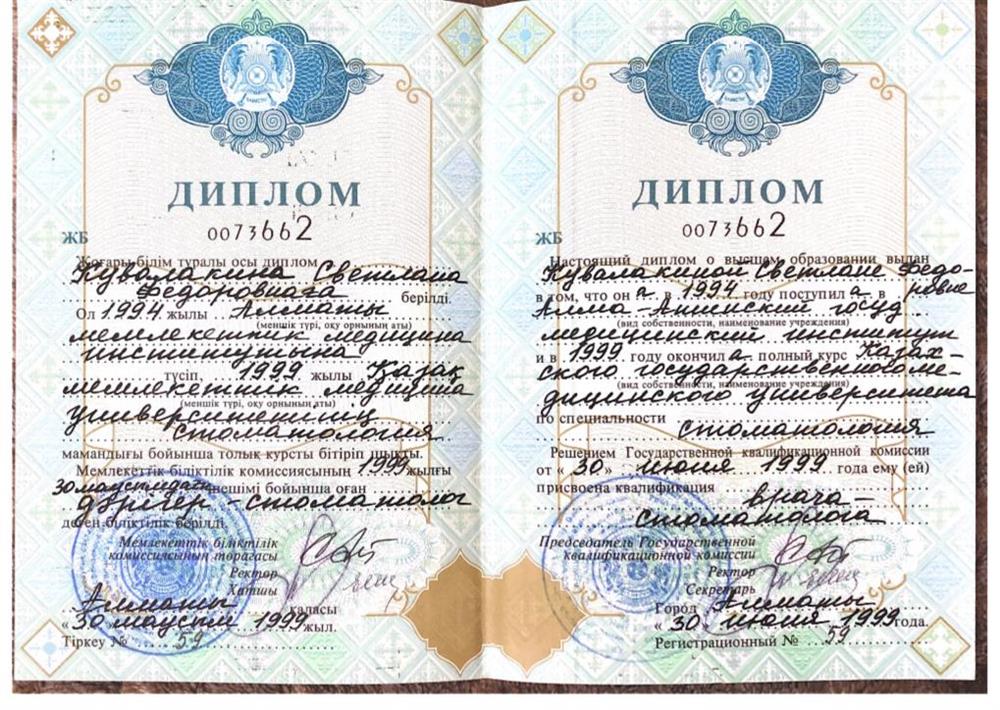 ДИПЛОМ
ЖБ 0073662
Жоғары білім туралы осы диплом
Кувалакина Светлана
Федоровнаға берілді.
Ол 1994 жылы Алматы
(меншік түрі, оқу орнының аты)
мемлекеттік медицина
институтына
түсіп, 1999 жылы Қазақ
мемлекеттік медицина
(меншік түрі, оқу орнының аты)
университетінің
стоматология
мамандығы бойынша толық курсты бітіріп шықты.
Мемлекеттік біліктілік комиссиясының 1999 жылғы
30 маусымдағы шешімі бойынша оған
дәрігер-стоматолог
деген біліктілік берілді.
Мемлекеттік біліктілік
комиссиясының төрағасы
Ректор
Хатшы
Алматы қаласы
« 30 » маусым 1999 жыл.
Тіркеу № 59
ДИПЛОМ
ЖБ 0073662
Настоящий диплом о высшем образовании выдан
Кувалакиной Светлане Федо-
ровне
в том, что он а в 1994 году поступил а в
Алма-Атинский госуд.
(вид собственности, наименование учреждения)
медицинский институт
и в 1999 году окончил а полный курс Казах-
ского государственного ме-
(вид собственности, наименование учреждения)
дицинского университета
по специальности
стоматология
Решением Государственной квалификационной комиссии
от « 30 » июня 1999 года ему (ей)
присвоена квалификация
врача-
стоматолога
Председатель Государственной
квалификационной комиссии
Ректор
Секретарь
Город Алматы
« 30 » июня 1999 года.
Регистрационный № 59